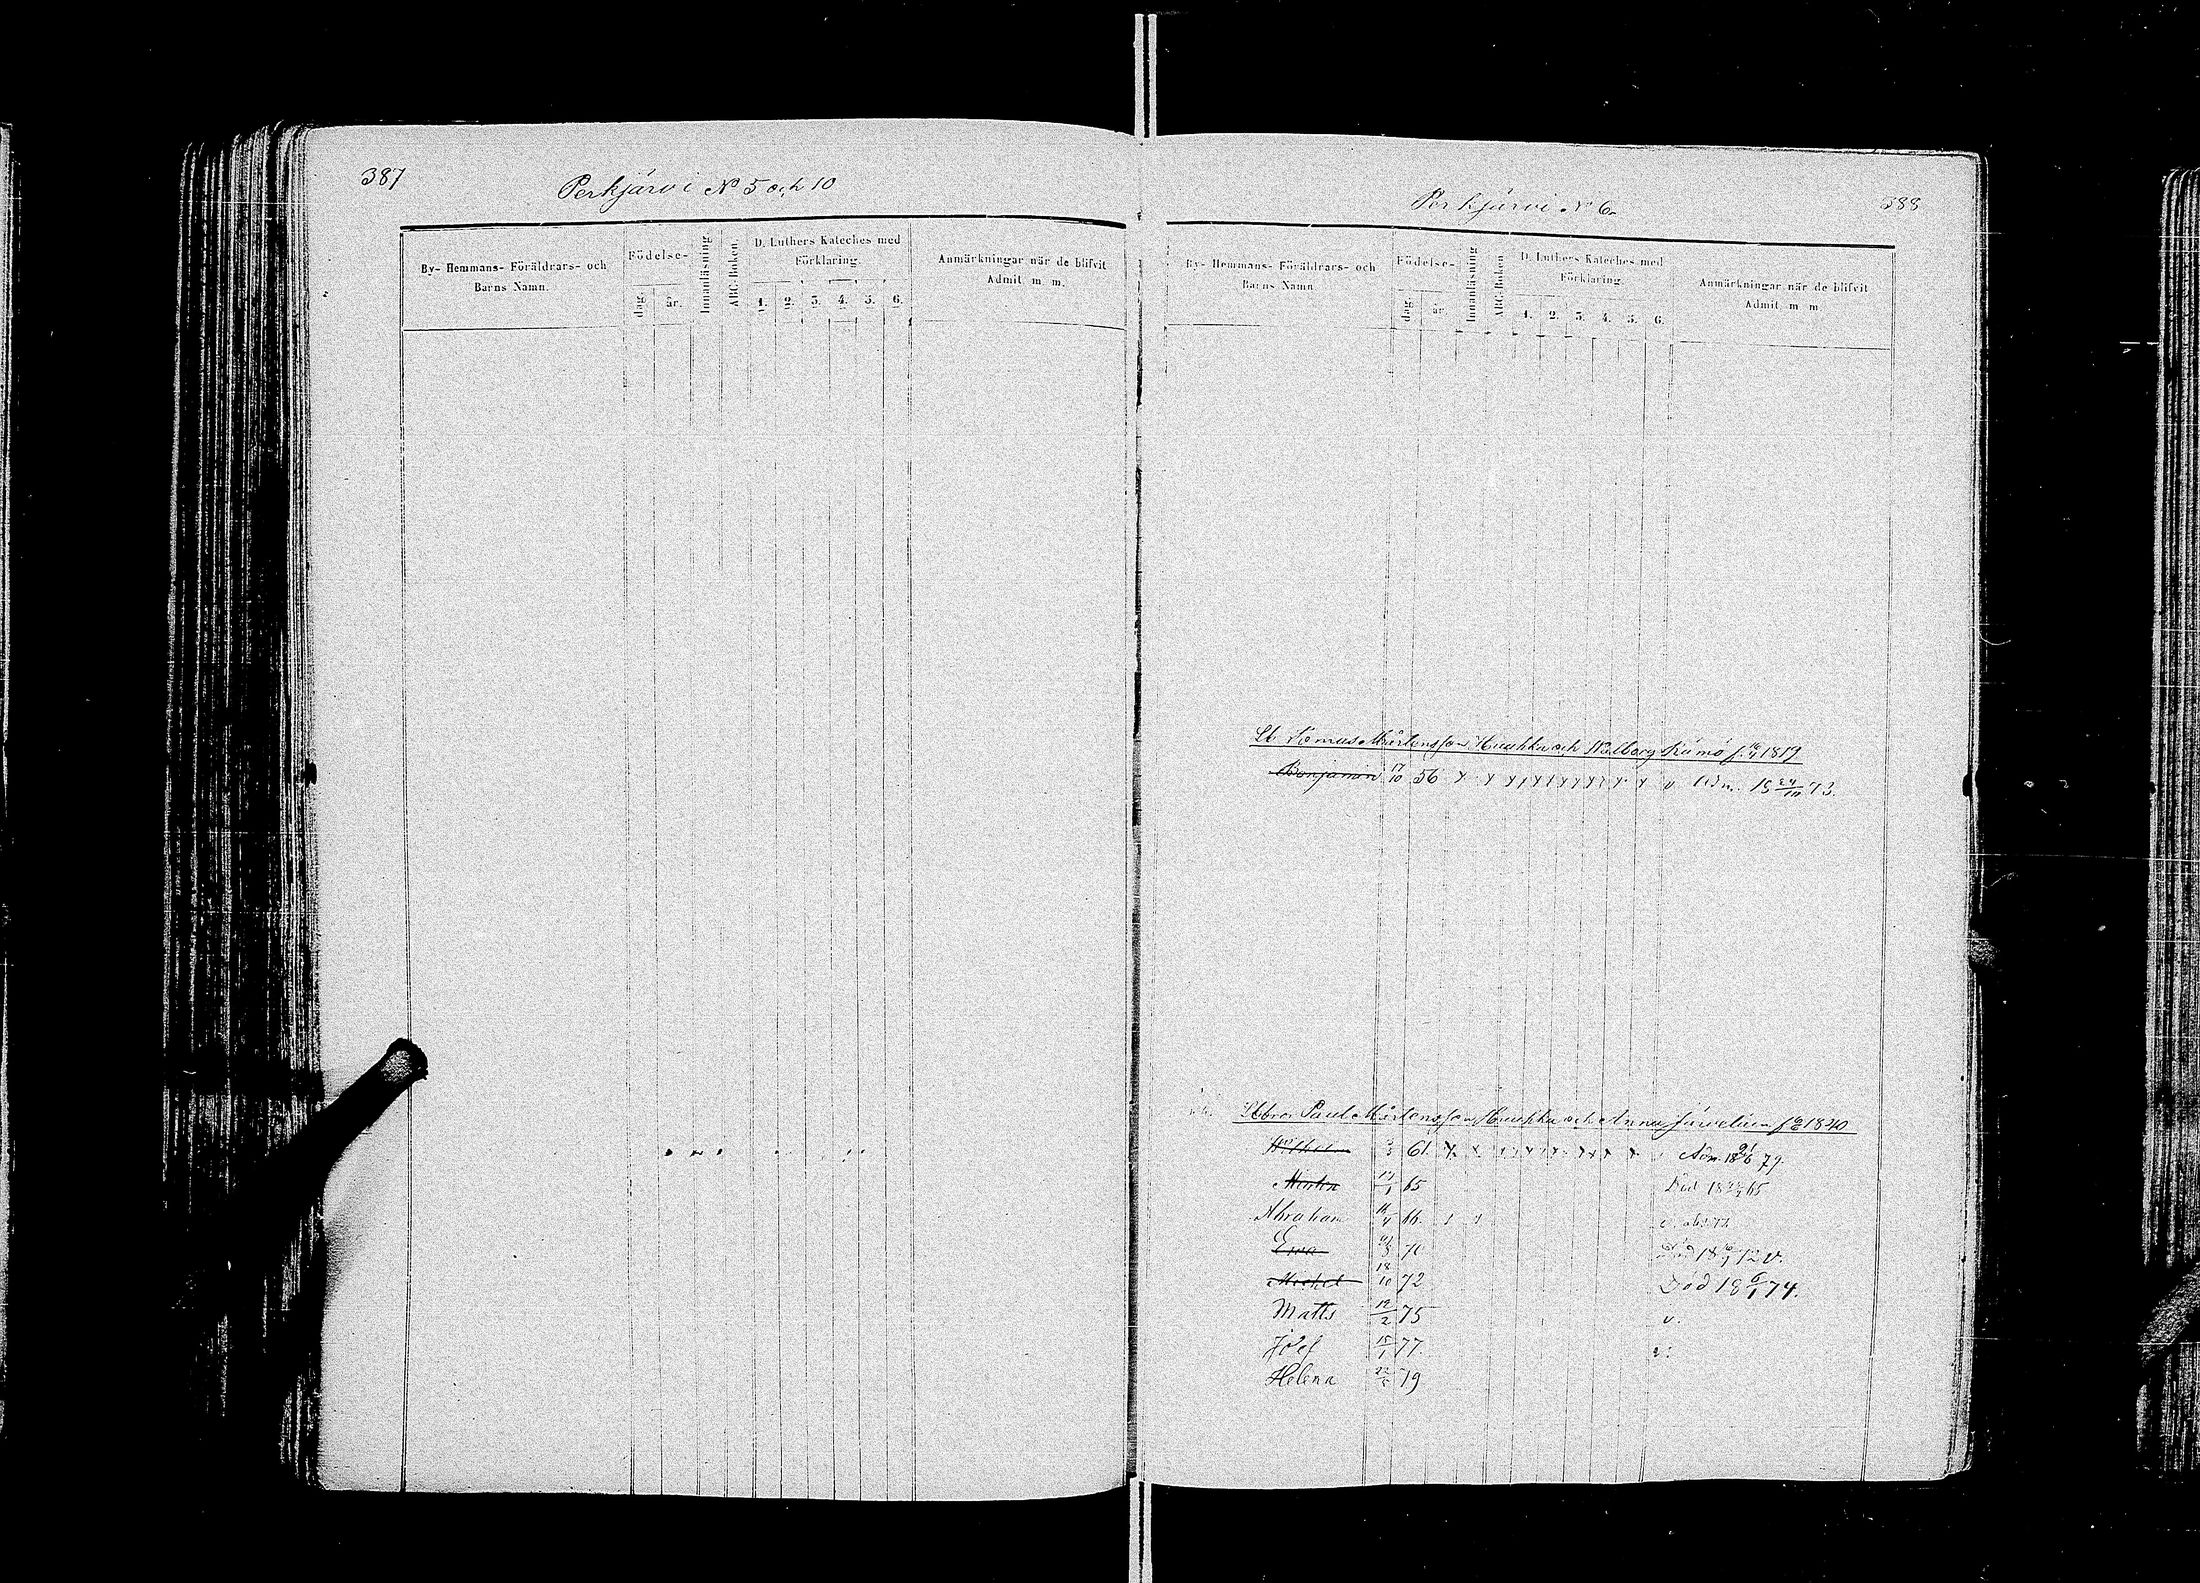 387
Perkjärvi No 5 och 10
By- Hemmans- Föräldrars- och Barns Namn.
Födelse-
dag. år.
Innanläsning
ABC-Boken
D. Luthers Kateches med Förklaring.
1. 2. 3. 4. 5. 6.
Anmärkningar när de blifvit Admit. m. m.
Perkjärvi No 6.
388
By- Hemmans- Föräldrars- och Barns Namn
Födelse-
dag år.
Innanläsning
ABC-Boken
D. Luthers Kateches med Förklaring.
1. 2. 3. 4. 5. 6.
Anmärkningar när de blifvit Admit. m. m.
Tomas Mårtensson och Walborg 1819
Benjamin 17/10 56 Adm. 18 24/10 73.
Paul Mårtensson och Anna 1840
Wilhelm 61. Adm. 18 79.
65 Död 18 65
Abraham 16/4 66.
Ewa 70 Död 18 72 v.
Michel 18/10 72 Död 18 6/1 74.
Matts 12/2 75 v.
Josef 15/1 77. v.
Helena 79